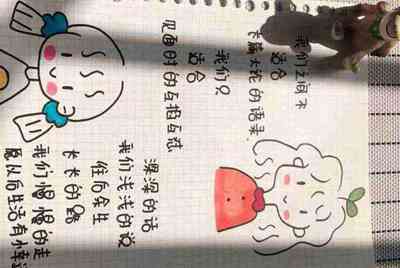 我们之间不
适合
长篇大论的语录
我们只
适合
见面时的互掐互怼
深深的话
我们浅浅的说
往后余生
长长的路
我们慢慢的走
愿从后生活有小幸